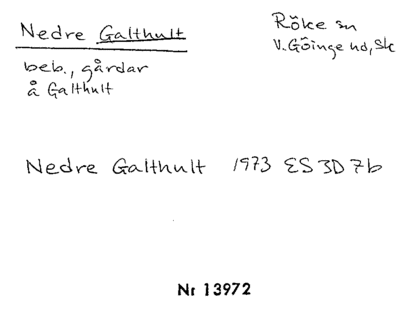 Nedre Galthult
Röke sn
V. Göinge hd, Sk
beb., gårdar
å Galthult
Nedre Galthult 1973 ES 3D 7b
Nr 13972